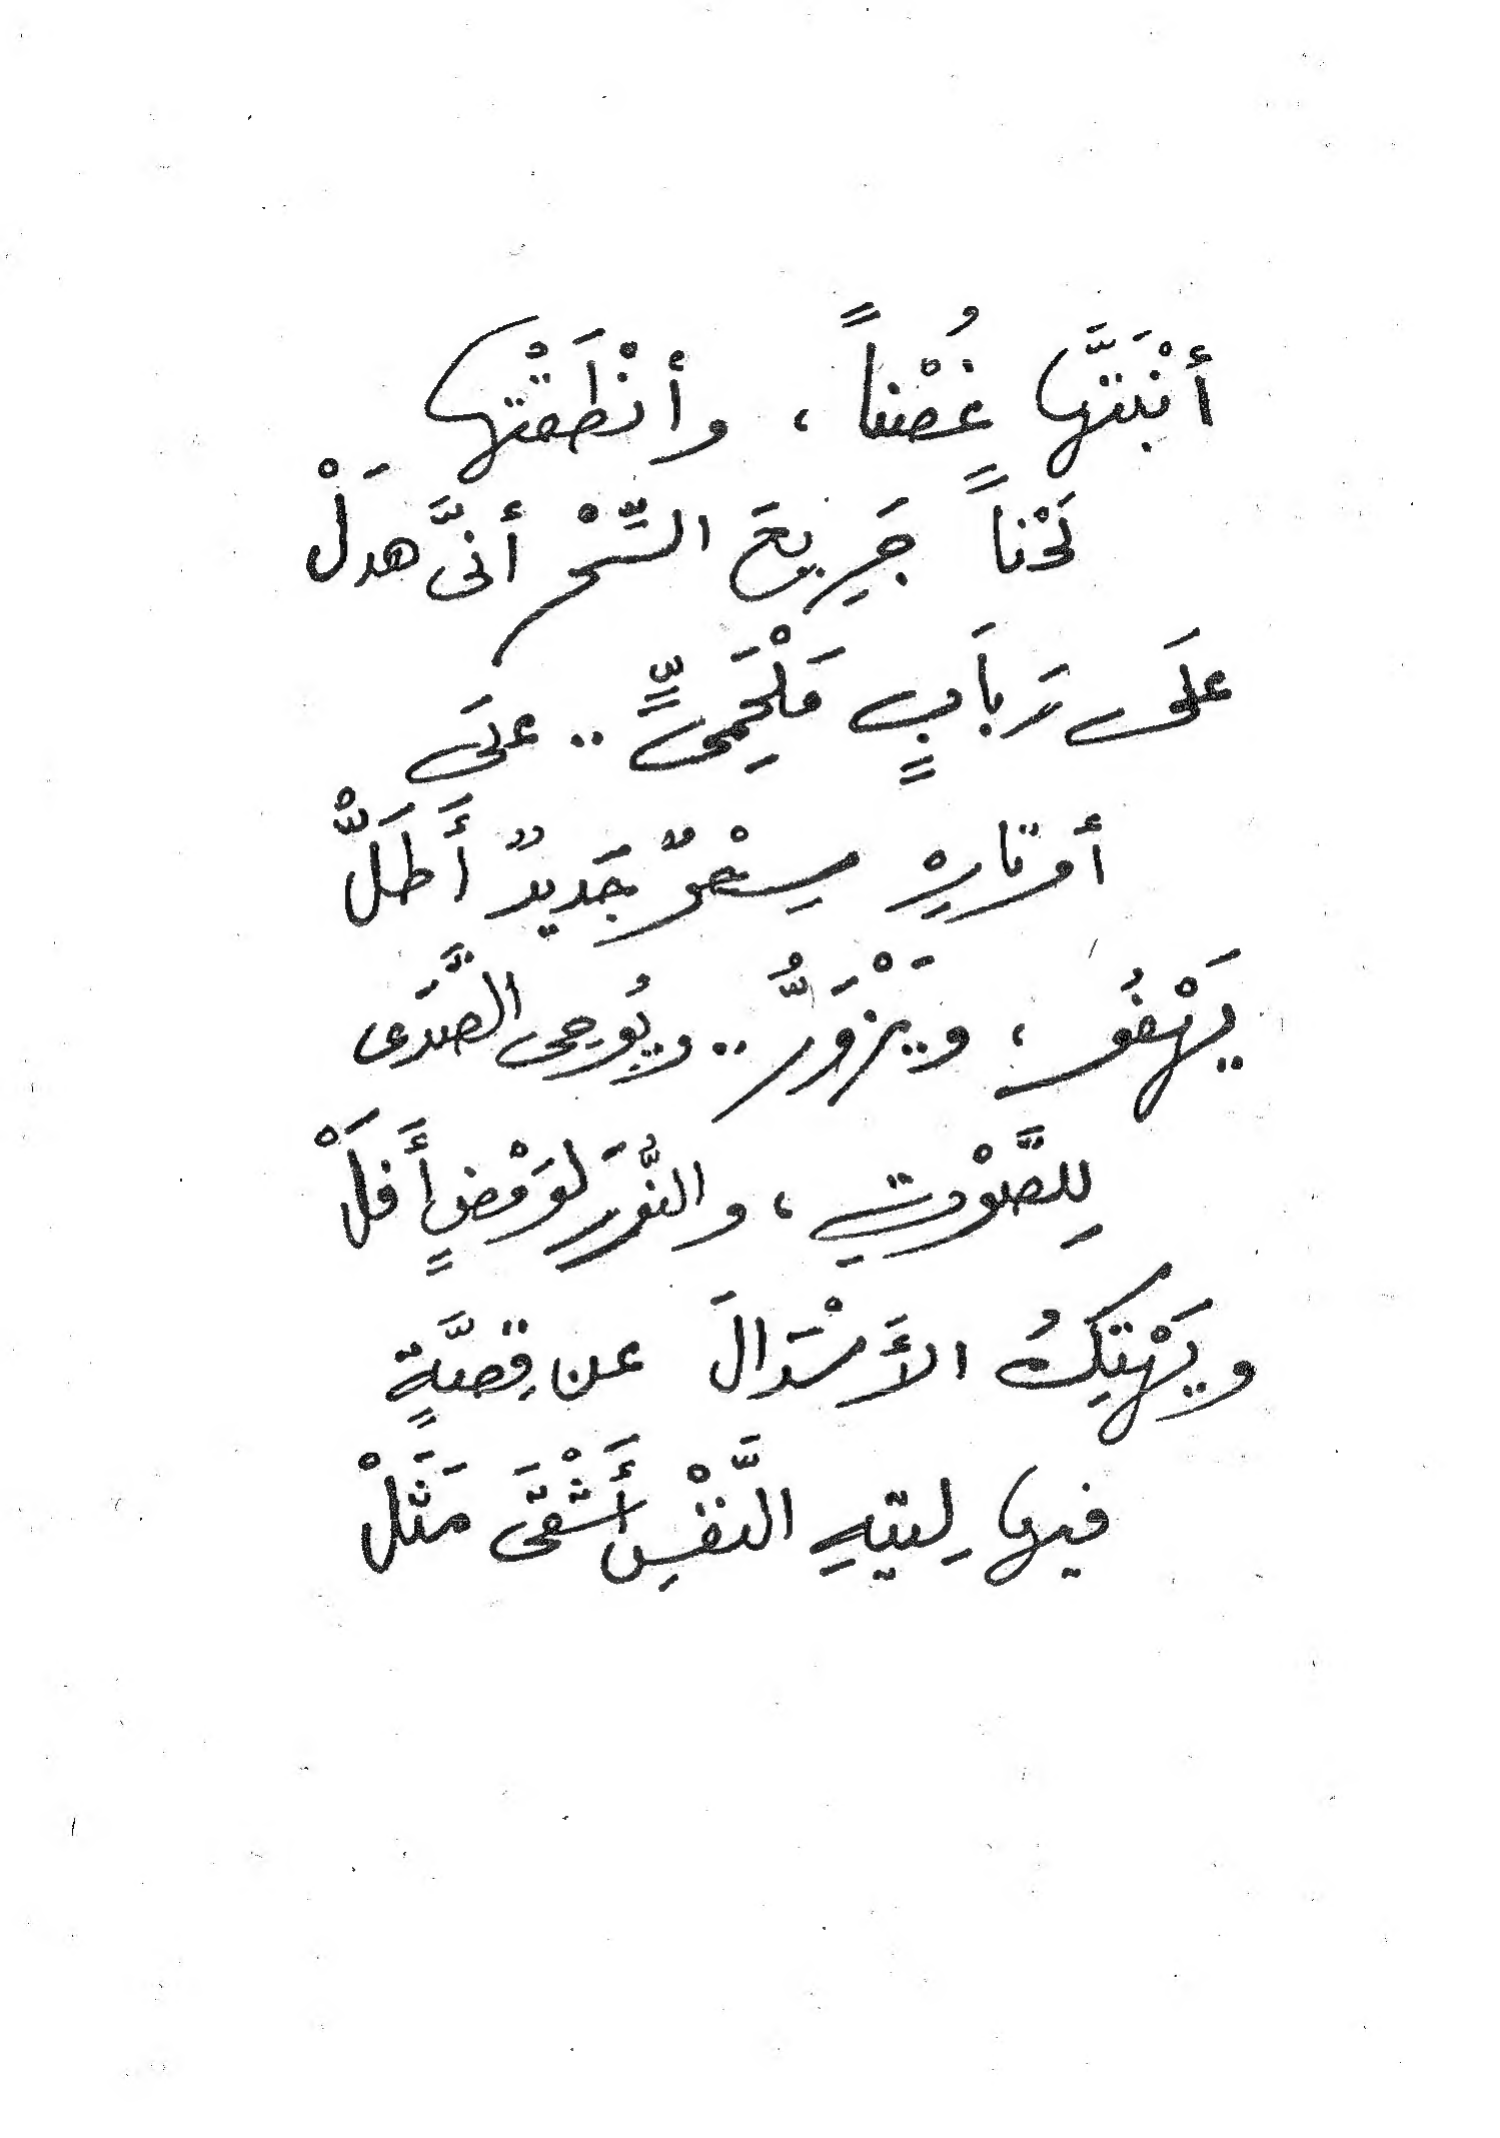 أنْبَتَّها غُصْناً ، وأنْطَقْتُها
لَحْناً جَرِيحَ السِّحْرِ أنَّى هدَلْ
علَى رَبَابٍ مَلْحَمِىٍّ .. علَى
أوتارِهِ سِحْرٌ جَدِيدٌ أَطَلّْ
يَهْفُو ، ويَزْوَرُّ .. ويُوحِى الصَّدَى
لِلصَّوْتِ ، والنُّورَ لوَمْضٍ أَفَلْ
ويَهْتِكُ الأَسْدَالَ عن قِصَّةٍ
فيها لِتيهِ النَّفْسِ أَشْقَى مَثَلْ